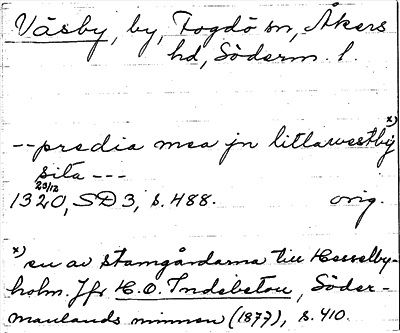 Väsby, by, Fogdö sn, Åkers
hd, Söderm. l.
--predia mea jn litlawæstby x)
sita ---
20/12
1320, SD 3, s. 488. orig.
x) en av stamgårdarna till Hesselby-
holm. Jfr H. O. Indebetou, Söder-
manlands minnen (1877), s. 410.